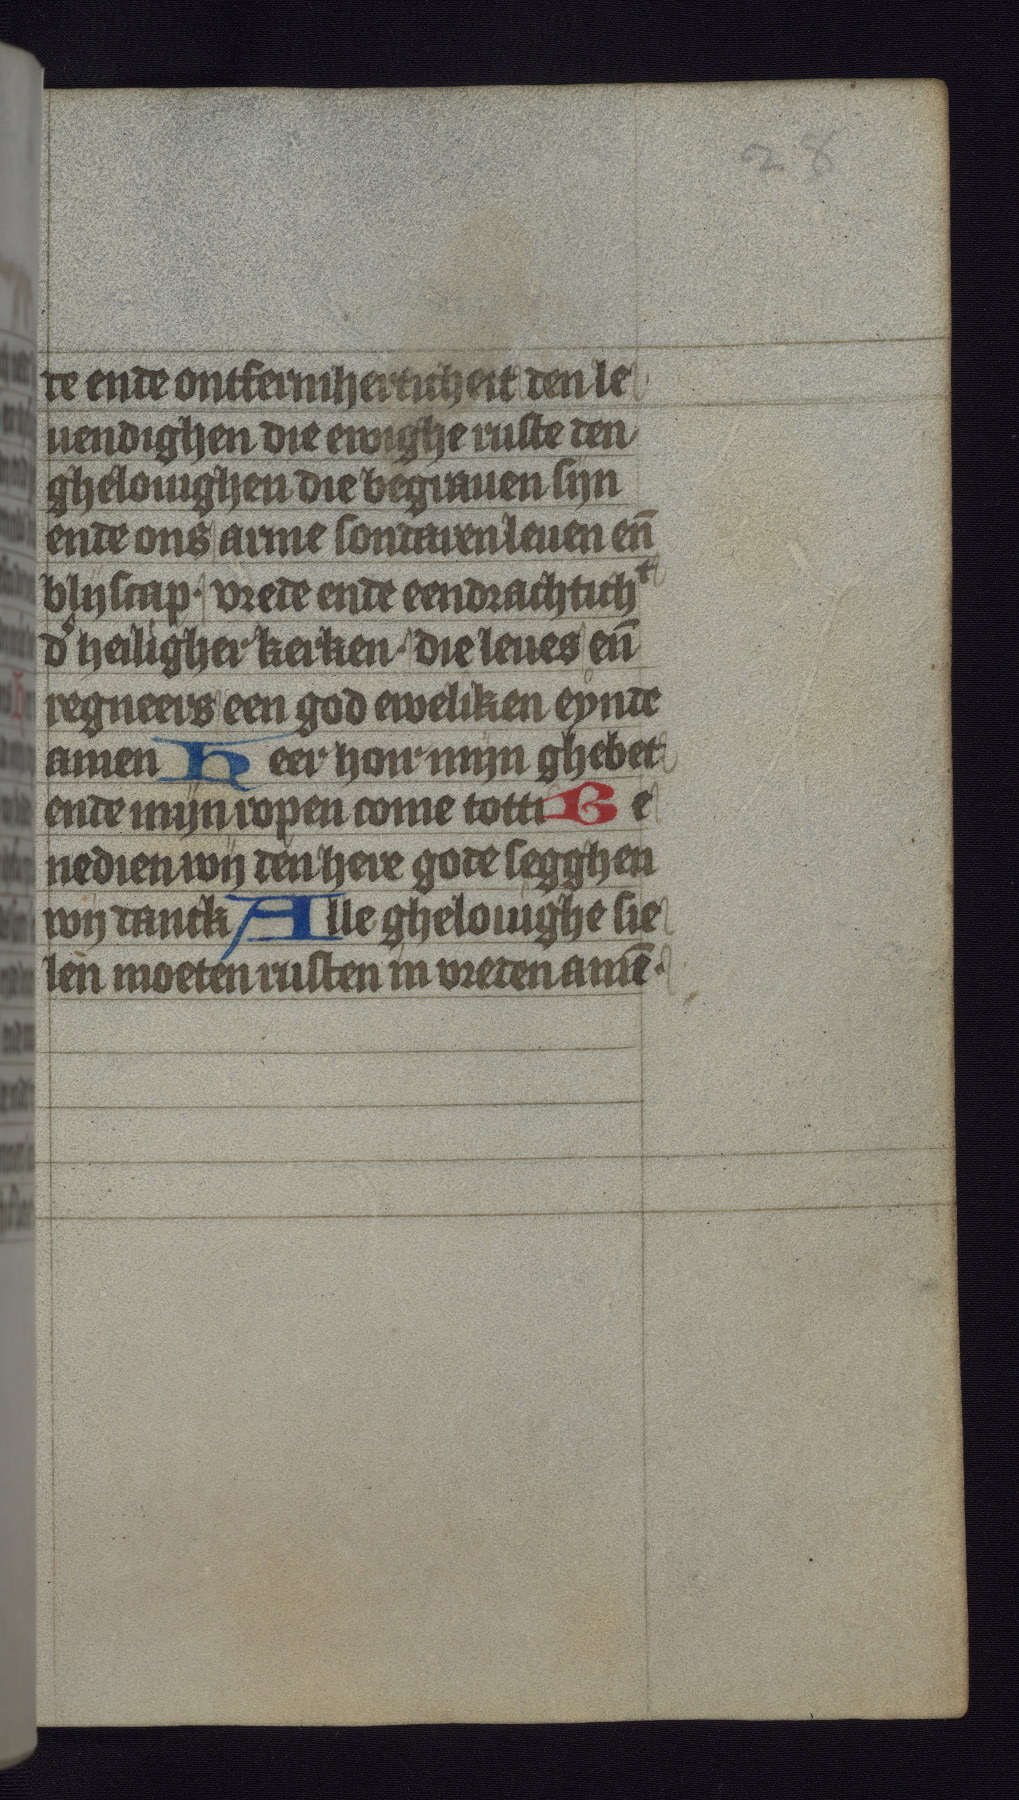 28
de ende ontfermhertichert den le
uendighen die ewighe ruste den
ghelouighen die begrauen sijn
ende ons arme sondaren leuen eñ
blijscap· vrede ende eendrachtichᵗ
d' heiligher kerken· die leues eñ
regneers een god eweliken eynde
amen Heer hoir mijn ghebet
ende mijn ropen come totti Be
nedien wij den here gode segghen
wij danck Alle ghelouighe sie
len moeten rusten in vreden amē·